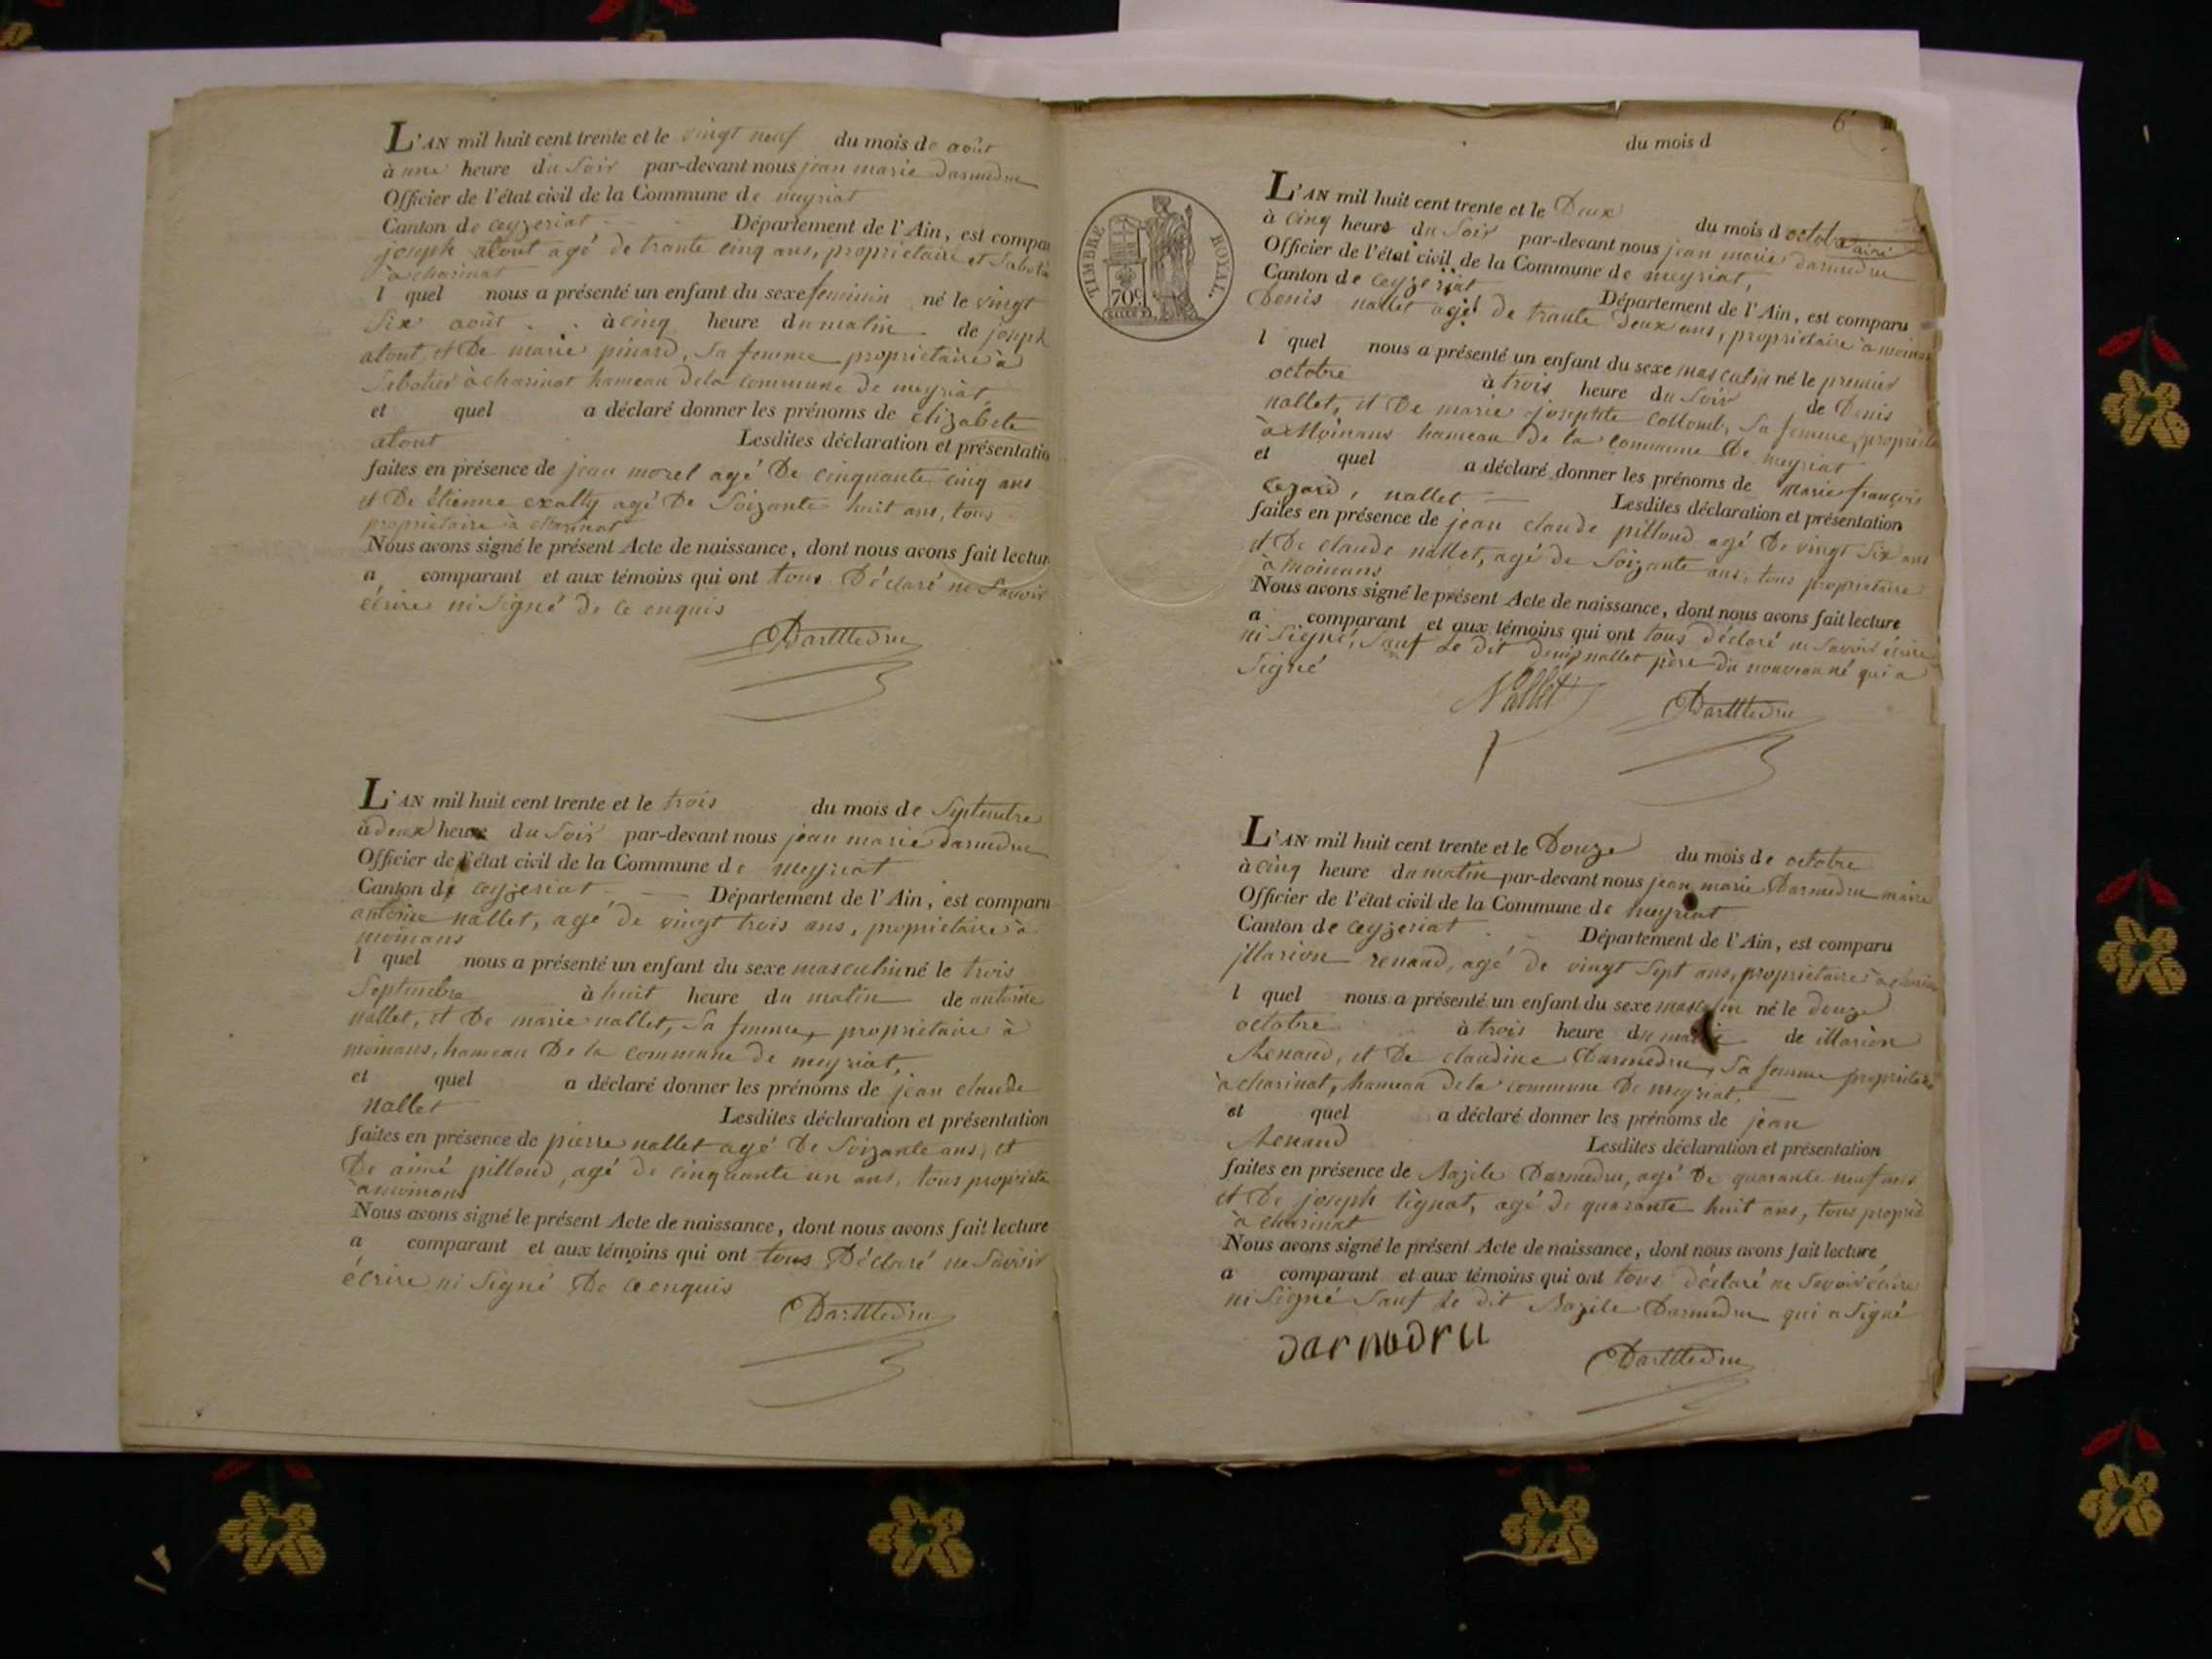 L'AN mil huit cent trente et le vingt neuf du mois de août
à une heure du soir par-devant nous jean marie darmedru
Officier de l'état civil de la Commune de meyriat
Canton de ceyzeriat Département de l'Ain, est compa
joseph atout agé de trante cinq ans, proprietaire et
à charinat
l quel nous a présenté un enfant du sexe feminin né le vingt
six août à cinq heure du matin de joseph
atout, et De marie pinard, sa femme proprietaire à
charinat hameau dela commune de meyriat
et quel a déclaré donner les prénoms de élizabete
atout Lesdites déclaration et présentatio
faites en présence de jean morel agé De cinquante cinq ans
et De étienne agé De soizante huit ans, tous
proprietaire à charinat
Nous avons signé le présent Acte de naissance, dont nous avons fait lectur
a comparant et aux témoins qui ont tous Déclaré ne savoir
écrire ni signé de ce enquis
DarMedru
L'AN mil huit cent trente et le trois du mois de septembre
à deux heure du soir par-devant nous jean marie darmedru
Officier de l'état civil de la Commune de meyriat
Canton de ceyzeriat Département de l'Ain, est comparu
antoine nallet, agé de vingt trois ans, proprietaire à
moinans
l quel nous a présenté un enfant du sexe masculin né le trois
septembre à huit heure du matin de antoine
nallet, et De marie nallet, sa femme, proprietaire à
moinans, hameau De la commune de meyriat,
et quel a déclaré donner les prénoms de jean claude
nallet Lesdites déclaration et présentation
faites en présence de pierre nallet agé De soizante ans, et
De aimé pilloud, agé de cinquante un ans, tous propriéta
à moinans
Nous avons signé le présent Acte de naissance, dont nous avons fait lecture
a comparant et aux témoins qui ont tous Déclaré ne savoir
écrire ni signé De ce enquis
DarMedru
6
du mois d
TIMBRE ROYAL.
70c
L'AN mil huit cent trente et le Deux du mois d octobre
à cinq heure du soir par-devant nous jean marie darmedru maire
Officier de l'état civil de la Commune de meyriat,
Canton de ceyzeriat Département de l'Ain, est comparu
Denis nallet agé de trante deux ans, proprietaire à moinans
l quel nous a présenté un enfant du sexe masculin né le premier
octobre à trois heure du soir de Denis
nallet, et De marie josephte collomb, sa femme, propriéta
à Moinans hameau De la commune De meyriat
et quel a déclaré donner les prénoms de Marie françois
cezard, nallet Lesdites déclaration et présentation
faites en présence de jean claude pilloud agé De vingt six ans
et De claude nallet, agé de soizante ans, tous proprietaire
à moinans
Nous avons signé le présent Acte de naissance, dont nous avons fait lecture
a comparant et aux témoins qui ont tous déclaré ne savoir écrire
ni signé, sauf Le dit denis nallet père du nouveau né qui a
signé
Nallet DarMedru
L'AN mil huit cent trente et le Douze du mois de octobre
à cinq heure du matin par-devant nous jean marie Darmedru maire
Officier de l'état civil de la Commune de meyriat
Canton de ceyzeriat Département de l'Ain, est comparu
illarion renaud, agé de vingt sept ans, proprietaire à
l quel nous a présenté un enfant du sexe masculin né le douze
octobre à trois heure du matin de illarion
Renaud, et De claudine Darmedru, sa femme proprietaire
à charinat, hameau dela commune De meyriat.
et quel a déclaré donner les prénoms de jean
Renaud Lesdites déclaration et présentation
faites en présence de Nazile Darmedru, agé De quarante neuf ans
et De joseph tignat, agé de quarante huit ans, tous proprié
à charinat
Nous avons signé le présent Acte de naissance, dont nous avons fait lecture
a comparant et aux témoins qui ont tous déclaré ne savoir écrire
ni signé sauf Le dit Nazile Darmedru qui a signé
Darmedru
DarMedru